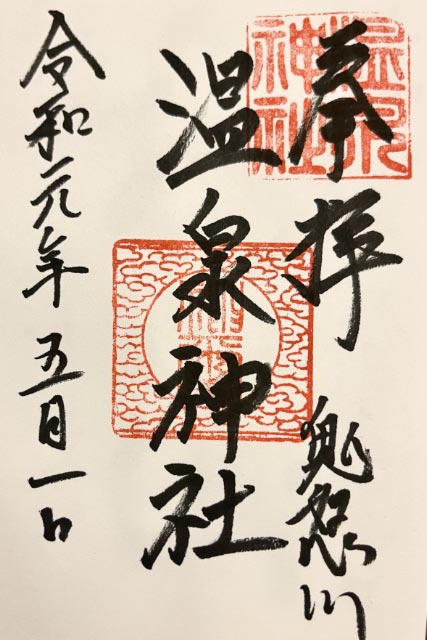 奉拝 鬼怒川
温泉神社
令和元年五月一日
温泉神社